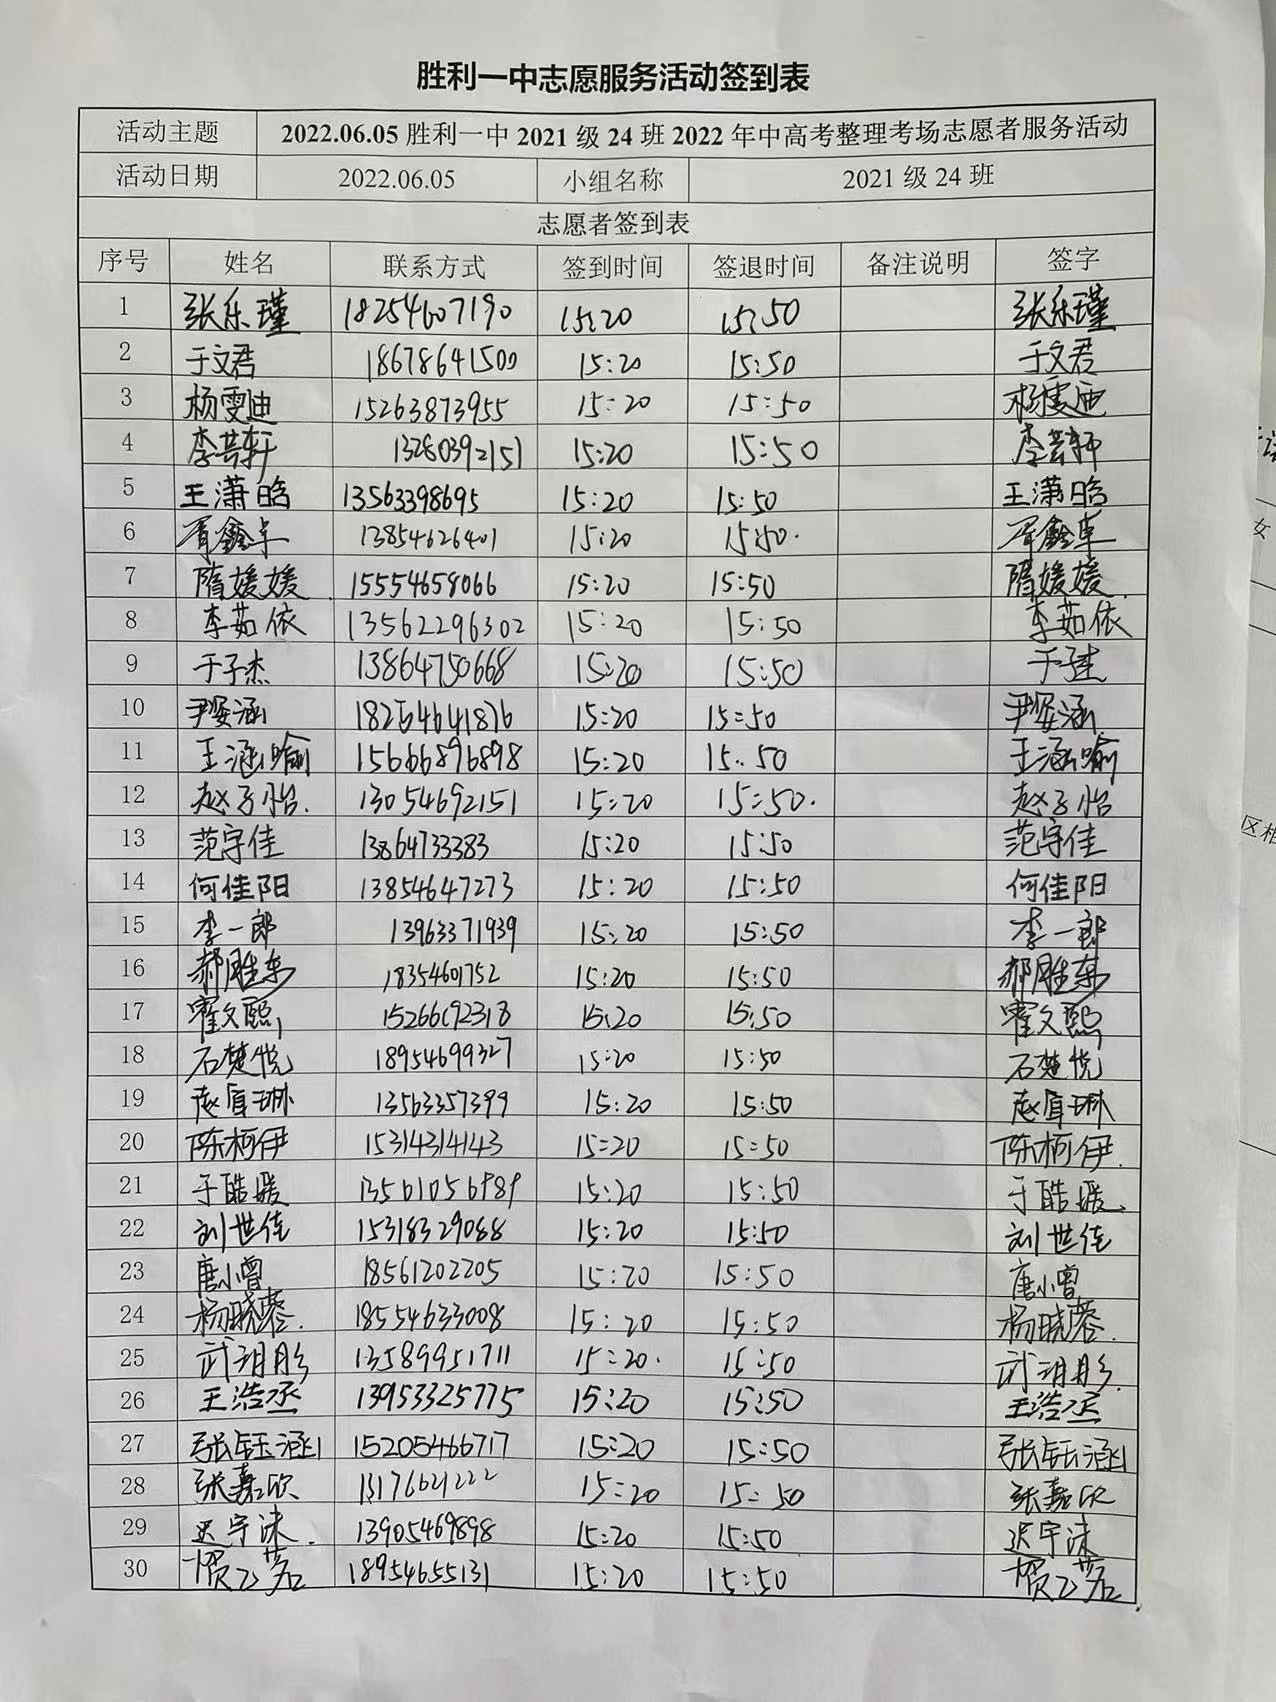 胜利一中志愿服务活动签到表
活动主题 2022.06.05 胜利一中 2021 级 24 班 2022 年中高考整理考场志愿者服务活动
活动日期 2022.06.05 小组名称 2021 级 24 班
志愿者签到表
序号 姓名 联系方式 签到时间 签退时间 备注说明 签字
1 张乐瑾 18254607190 15:20 15:50 张乐瑾
2 于文君 18678641500 15:20 15:50 于文君
3 杨雯迪 15263873955 15:20 15:50 杨雯迪
4 李芸轩 13280392151 15:20 15:50 李芸轩
5 王潇晗 13563398695 15:20 15:50 王潇晗
6 胥鑫卓 13854626401 15:20 15:50. 胥鑫卓
7 隋媛媛 15554658066 15:20 15:50 隋媛媛
8 李茹依 13562296302 15:20 15:50 李茹依
9 于子杰 13864750668 15:20 15:50 于子杰
10 尹姿涵 18254641876 15:20 15:50 尹姿涵
11 王涵喻 15666896898 15:20 15:50 王涵喻
12 赵子怡. 13054692151 15:20 15:50. 赵子怡
13 范宇佳 13864733383 15:20 15:50 范宇佳
14 何佳阳 13854647273 15:20 15:50 何佳阳
15 李一郎 13963371939 15:20 15:50 李一郎
16 郝胜东 18354601752 15:20 15:50 郝胜东
17 霍文熙 15266692318 15:20 15:50 霍文熙
18 石楚悦 18954699327 15:20 15:50 石楚悦
19 赵宜琳 13563357399 15:20 15:50 赵宜琳
20 陈柯伊 15314314143 15:20 15:50 陈柯伊.
21 于皓媛 13561056989 15:20 15:50 于皓媛
22 刘世佳 15318329088 15:20 15:50 刘世佳
23 唐小曾 18561202205 15:20 15:50 唐小曾
24 杨晓蓉. 18554633008 15:20 15:50 杨晓蓉.
25 武玥彤 13589951711 15:20. 15:50 武玥彤
26 王浩丞 13953325775 15:20 15:50 王浩丞
27 张钰涵 15205466717 15:20 15:50 张钰涵
28 张嘉欣 15:20 15:50 张嘉欣
29 迟宇沫. 13905469898 15:20 15:50 迟宇沫
30 贾乙茗 18954655131 15:20 15:50 贾乙茗
女
区相